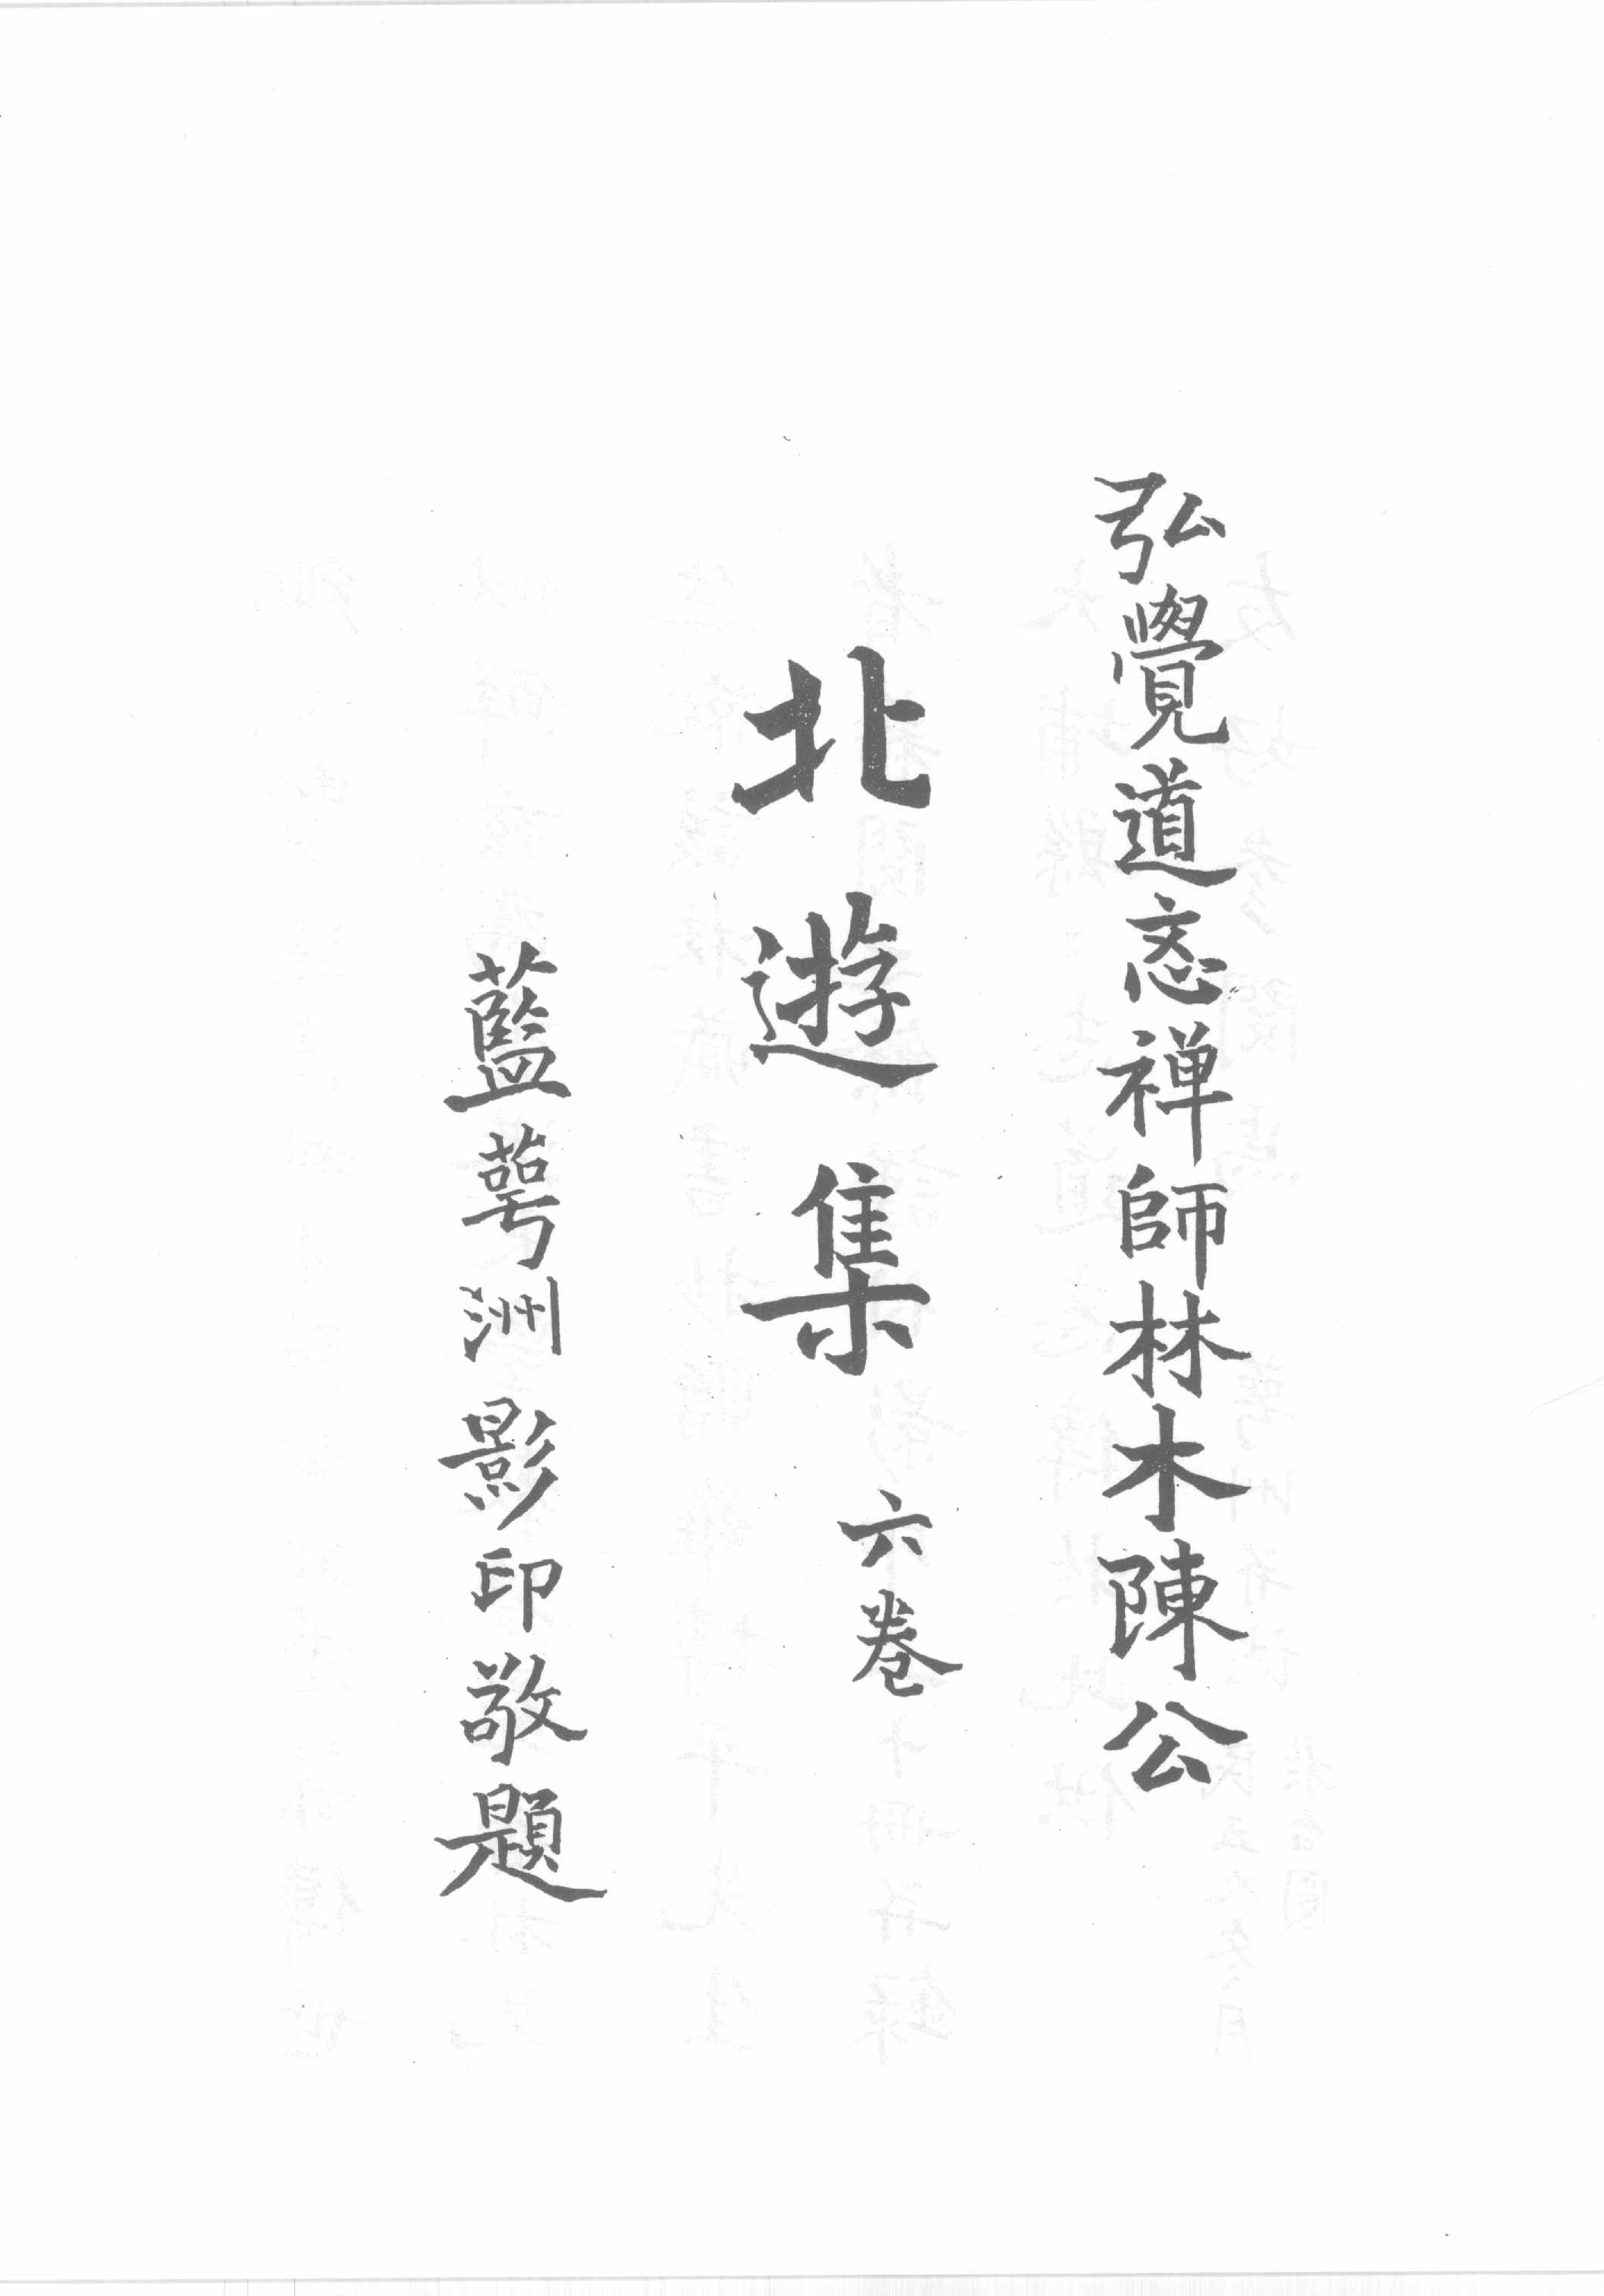 弘覺道忞禅師林木陳公
北遊集 六卷
藍萼洲影印敬題